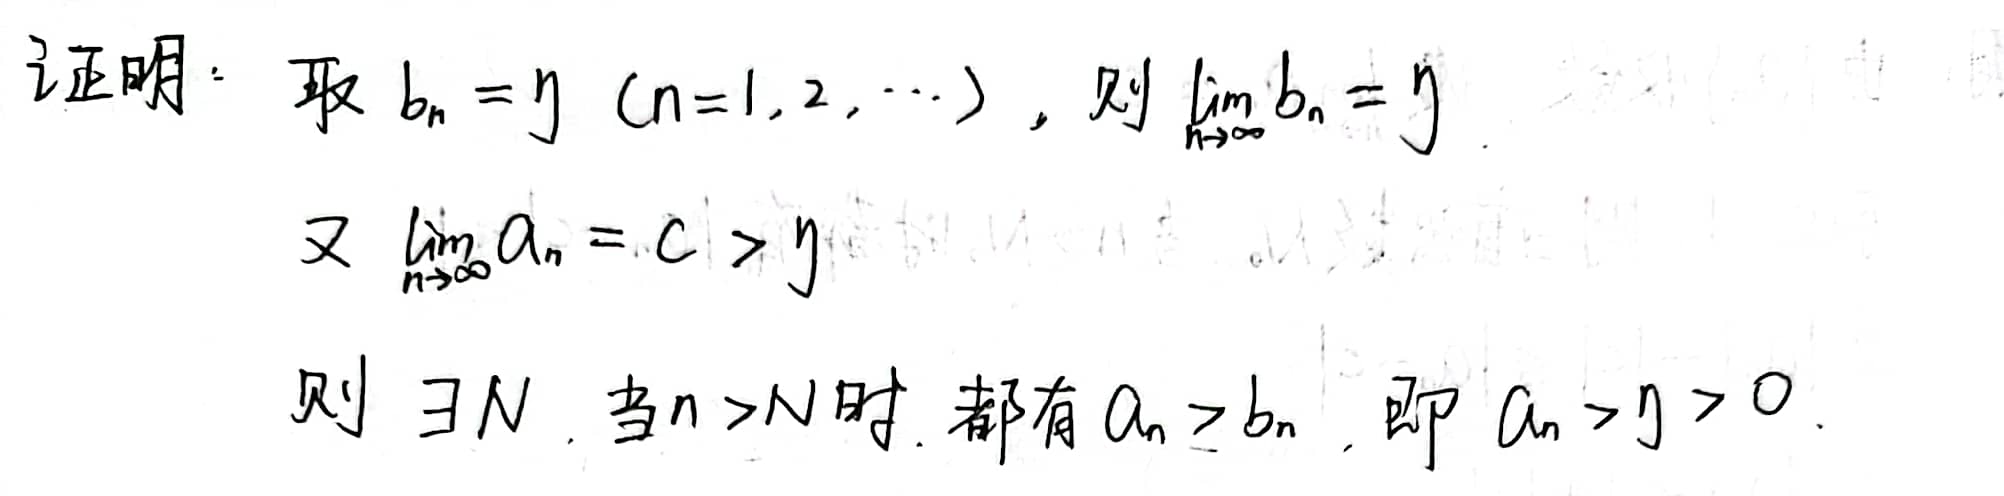 证明: 取 bₙ = η (n=1, 2, ⋯), 则 lim_{n→∞} bₙ = η.
又 lim_{n→∞} aₙ = c > η
则 ∃N. 当 n>N 时. 都有 aₙ > bₙ, 即 aₙ > η > 0.